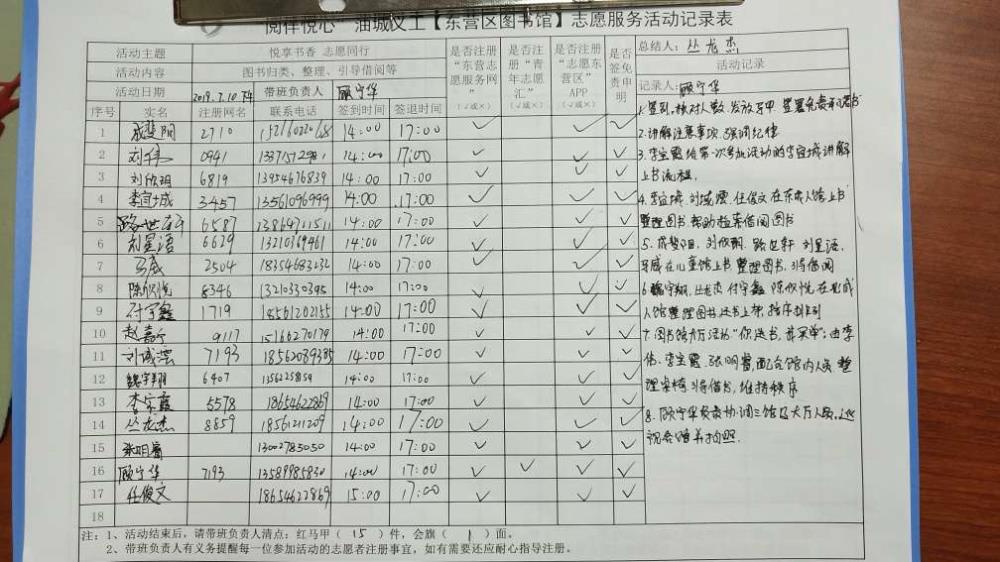 阅伴悦心 油城义工【东营区图书馆】志愿服务活动记录表
活动主题 悦享书香 志愿同行
活动内容 图书归类、整理、引导借阅等
活动日期 2019.7.10 下午 带班负责人 顾宁华
是否注册“东营志愿服务网”（√或×） 是否注册“青年志愿汇”（√或×） 是否注册“志愿东营区”APP（√或×） 是否签免责申明
总结人：丛龙杰
活动记录
记录人：顾宁华
序号 实名 注册网名 联系电话 签到时间 签退时间
1 2710 14:00 17:00 √ √ √
2 刘伟 0941 14:00 17:00 √ √ √
3 刘欣玥 6819 13954676839 14:00 17:00 √ √ √
4 李宜城 3457 13561096999 14:00 17:00 √ √ √
5 路世轩 6587 14:00 17:00 √ √ √
6 刘星语 6629 13210369461 14:00 17:00 √ √ √
7 马威 2504 18354683232 14:00 17:00 √ √ √
8 陈欣悦 8346 13210330395 14:00 17:00 √ √ √
9 付宇鑫 1719 18561202155 14:00 17:00 √ √ √
10 赵嘉 9117 15166270179 14:00 17:00 √ √ √
11 刘 7193 14:00 17:00 √ √ √
12 魏宇翔 6407 14:00 17:00 √ √ √
13 李宝霞 5578 18654622869 14:00 17:00 √ √ √
14 丛龙杰 8859 18561211209 14:00 17:00 √ √ √
15 张明 13002785050 14:00 17:00 √ √ √
16 顾宁华 7193 13589985830 14:00 17:00 √ √ √ √
17 任俊文 18654622869 15:00 17:00 √ √ √
18
1.签到，核对人数 发放马甲 签署免责承诺书
2.讲解注意事项，强调纪律
3.李宝霞给第一次参加活动的李宜城讲解
上书流程.
4.李宜城、刘 任俊文在东成人馆上书
整理图书 帮助检索借阅图书
5. 刘欣玥、路世轩 刘星语、
马威在儿童馆上书 整理图书，
6.魏宇翔、丛龙杰 付宇鑫 陈欣悦在西成
人馆整理图书 还书上架 按序排列
7.图书馆大厅活动“你选书，我买单”：由李
伟、李宝霞、张明 配合馆内人员 整
理桌椅 维持秩序
8.顾宁华负责协调三馆及大厅人员，巡
视 并拍照.
注：1、活动结束后，请带班负责人清点：红马甲（ 15 ）件，会旗（ 1 ）面。
2、带班负责人有义务提醒每一位参加活动的志愿者注册事宜，如有需要还应耐心指导注册。